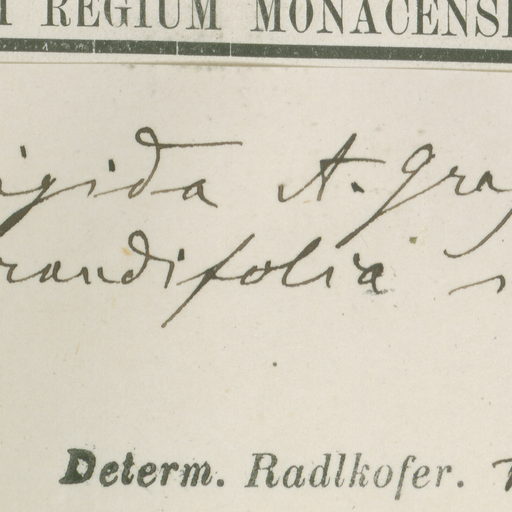 REGIUM MONACENS
igida A. Gray
randifolia
Determ. Radlkofer.